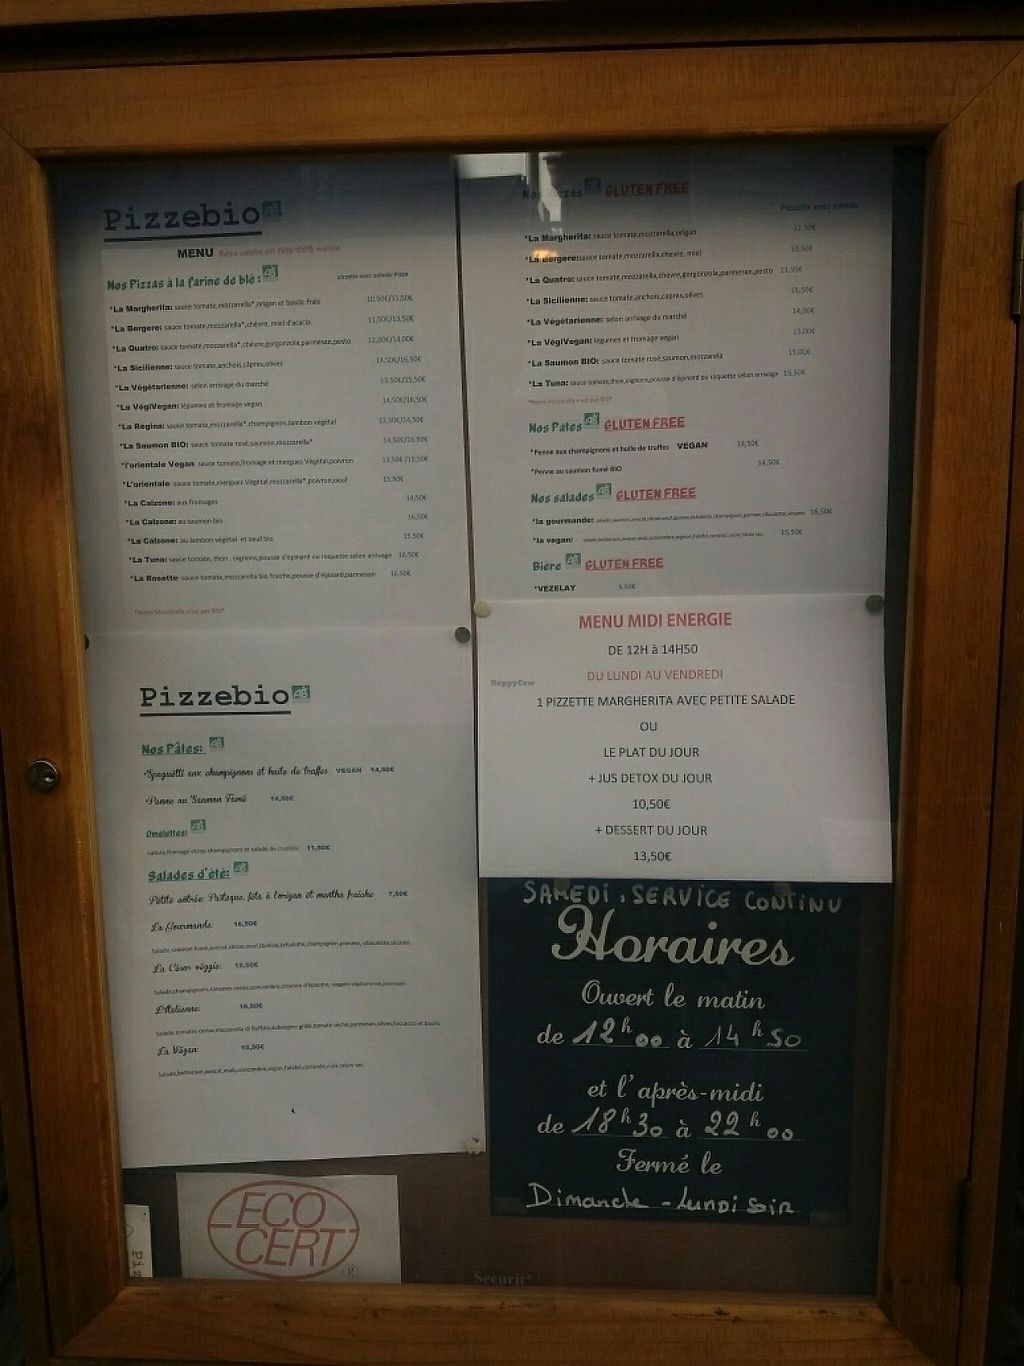 Pizzebio AB
MENU Notre cuisine est faite 100% maison
Nos Pizzas à la farine de blé : AB
pizzette avec salade/ Pizza
*La Margherita: sauce tomate,mozzarella*,origan et basilic frais 10,50€/13,50€
*La Bergere: sauce tomate,mozzarella*,chèvre, miel d'acacia 11,50€/13,50€
*La Quatro: sauce tomate,mozzarella*,chèvre,gorgonzola,parmesan,pesto 12,00€/14,00€
*La Sicilienne: sauce tomate,anchois,câpres,olives 14,50€/16,50€
*La Végétarienne: selon arrivage du marché 13,50€/15,50€
*La VégiVegan: légumes et fromage vegan 14,50€/16,50€
*La Régina: sauce tomate,mozzarella*,champignon,jambon végétal 12,50€/14,50€
*La Saumon BIO: sauce tomate rosé,saumon,mozzarella* 14,50€/16,50€
*l'orientale Vegan: sauce tomate,fromage et merguez Végétal,poivron 13,50€ /15,50€
*L'orientale: sauce tomate,merguez Végétal,mozzarella*,poivron,oeuf 15,50€
*La Calzone: aux fromages 14,50€
*La Calzone: au saumon bio 16,50€
*La Calzone: au jambon végétal et oeuf bio 15,50€
*La Tuna: sauce tomate, thon, oignons,pousse d'épinard ou roquette selon arrivage 16,50€
*La Rosette: sauce tomate,mozzarella bio fraiche,pousse d'épinard,parmesan 16,50€
*Notre Mozzarella n'est pas BIO*
Nos Pizzas AB GLUTEN FREE
Pizzette avec salade
*La Margherita: sauce tomate,mozzarella,origan 11,50€
*La Bergere:sauce tomate,mozzarella,chèvre, miel 13,50€
*La Quatro: sauce tomate,mozzarella,chevre,gorgonzola,parmesan,pesto 13,50€
*La Sicilienne: sauce tomate,anchois,capres,olives 15,50€
*La Végétarienne: selon arrivage du marché 14,00€
*La VégiVegan: légumes et fromage vegan 15,00€
*La Saumon BIO: sauce tomate rosé,saumon,mozzarela 15,00€
*La Tuna: sauce tomate,thon,oignons,pousse d'épinard ou roquette selon arrivage 15,50€
*Notre mozzarella n'est pas BIO*
Nos Pates AB GLUTEN FREE
*Penne aux champignons et huile de truffes VEGAN 14,50€
*Penne au saumon fumé BIO 14,50€
Nos salades AB GLUTEN FREE
*la gourmande: 16,50€
*la vegan: 15,50€
Bière AB GLUTEN FREE
*VEZELAY 5,50€
MENU MIDI ENERGIE
DE 12H à 14H50
DU LUNDI AU VENDREDI
1 PIZZETTE MARGHERITA AVEC PETITE SALADE
OU
LE PLAT DU JOUR
+ JUS DETOX DU JOUR
10,50€
+ DESSERT DU JOUR
13,50€
HappyCow
Pizzebio AB
Nos Pâtes: AB
*Spaguetti aux champignons et huile de truffes VEGAN 14,50€
*Penne au Saumon Fumé 14,50€
Omelettes: AB
nature,fromage et/ou champignons et salade de crudités 11,50€
Salades d'été: AB
Petite entrée: Pastèque, féta à l'origan et menthe fraîche 7,50€
La Gourmande: 16,50€
Salade,saumon fumé,avocat,citron,oeuf,Quinoa,échalotte,champignon,pomme, ciboulette,sésame
La César véggie: 15,50€
Salade,champignons,tomates cerise,concombre,crouton d'épautre, nuggets végétarienne,parmesan
L'Italienne: 16,50€
Salade,tomates cerise,mozzarella di Buffala,aubergine grillé,tomate séché,parmesan,olives,foccassia et basilic
La Végan: 15,50€
Salade,betterave,avocat,maïs,concombre,oignon,falafel,coriande,noix,raisin sec
SAMEDI : SERVICE CONTINU
Horaires
Ouvert le matin
de 12h00 à 14h50
et l'après-midi
de 18h30 à 22h00
Fermé le
Dimanche - Lundi soir
ECO
CERT
®
Piz
Securit